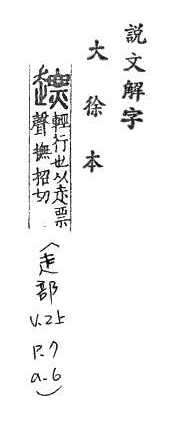 說文解字
大徐本
輕行也从走票
聲撫招切
(走部
V.2上
P.7
a.6)